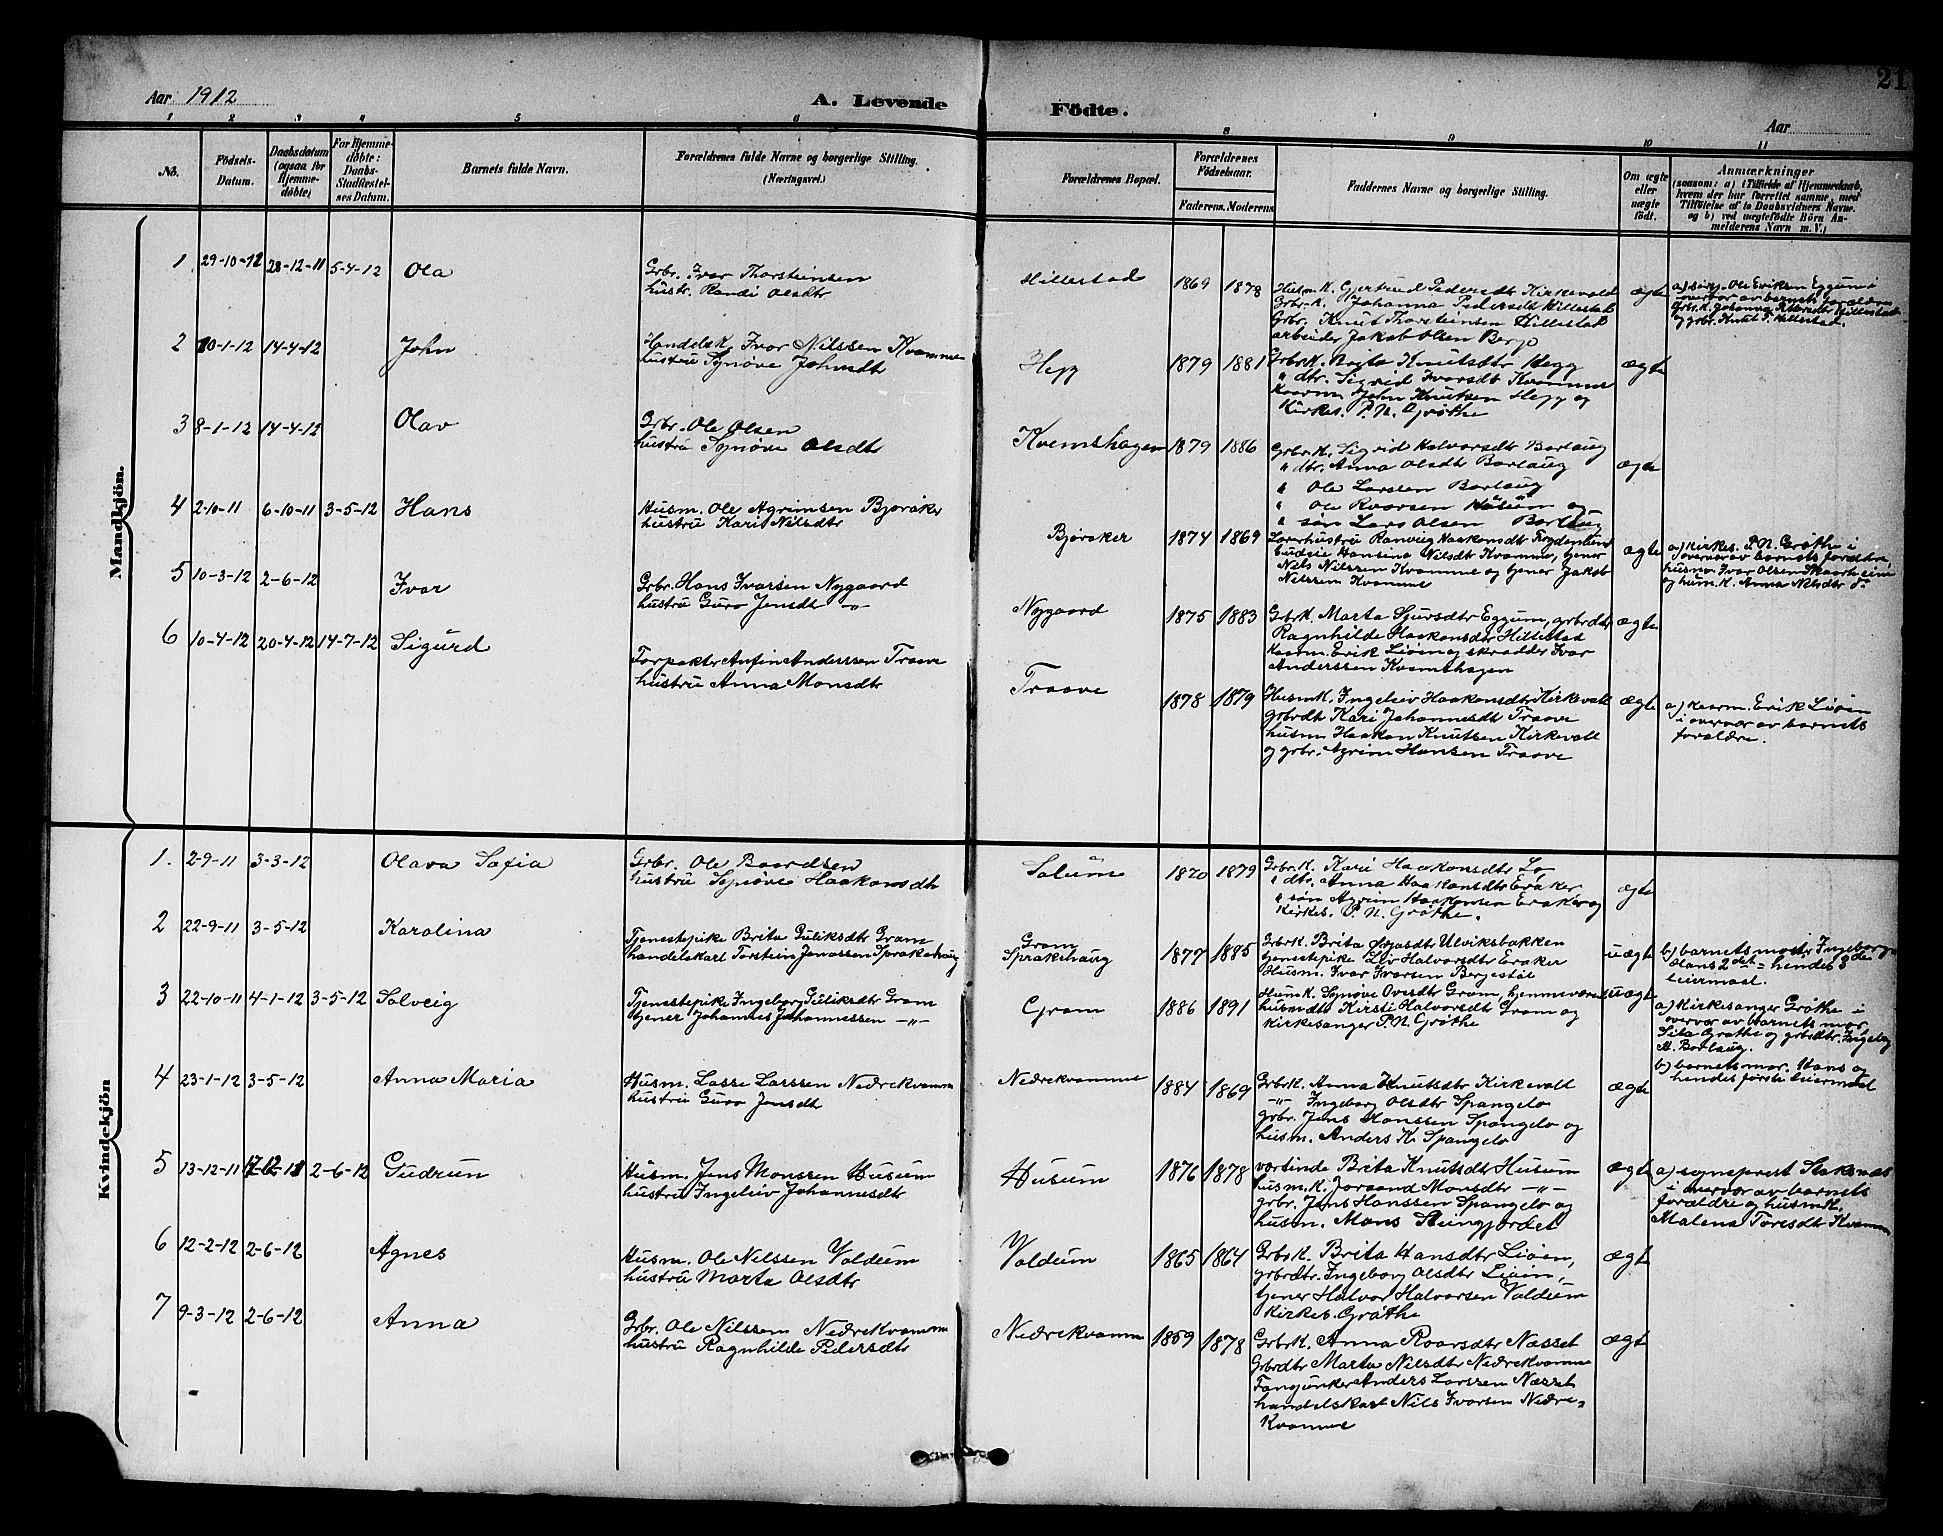 21
Aar 1912
A. Levende
Födte.
Aar
1 2 3 4 5 6 8 9 10 11
No.
Födsels-
Datum.
Daabsdatum
(ogsaa for
Hjemme-
døbte)
For Hjemme-
døbte:
Daabs-
Stadfæstel-
ses Datum.
Barnets fulde Navn.
Forældrenes fulde Navne og borgerlige Stilling.
(Næringsvei.)
Forældrenes Bopæl.
Forældrenes
Födselsaar.
Faderens. Moderens
Faddernes Navne og borgerlige Stilling.
Om ægte
eller
uægte
födt.
Anmærkninger
(saasom: a) i Tilfælde af Hjemmedaab,
hvem der har forrettet samme, med
Tilföielse af to Daabsvidners Navne.
og b) ved uægtefödte Börn An-
melderens Navn m. V.)
Mandkjön.
1 29-10-12 28-12-11 5-4-12 Ola
Grbr. Ivar Thorsteinsen
hustr. Randi Olsdtr
Hillestad 1869 1878
Husm.k. Gjertrud Pedersdt Kirkevold
Grbr.k. Johanna Pedersdt Hillestad
Grbr. Knut Thorsteinsen Hillestad
arbeider Jakob Olsen Berge
ægte
Ole Eriksen Eggum i
overvær av barnets forældre
Grbr.k. Johanna Pedersdt Hillestad
og grbr. Knut T. Hillestad.
2 10-1-12 14-4-12 John
Handelsk. Ivar Nilssen Kvamme
hustru Synøve Johnsdtr
Hegg 1879 1881
Grbr.k. Brita Knutsdtr Hegg
" dtr. Sigrid Ivarsdt Kvamme
Kaarm. John Knutsen Hegg og
Kirkes. P.N. Grøthe
ægte
3 8-1-12 14-4-12 Olav
Grbr. Ole Olsen
hustru Synøve Olsdtr
Kvemshagen 1879 1886
Grbr.k. Sigrid Halvorsdtr Borlaug
" dtr. Anna Olsdt Borlaug
" Ole Larsen Borlaug
" Ole Roarsen Husum og
" søn Lars Olsen Borlaug
ægte
4 2-10-11 6-10-11 3-5-12 Hans
Husm. Ole Agrimsen Bjøraker
hustru Kari Nilsdtr
Bjøraker 1874 1869
Lærerhustru Ranveig Haakonsdt Frydenlund
budeie Hansine Nilsdt Kvamme, tjener
Nils Nilssen Kvamme og tjener Jakob
Nilssen Kvamme
ægte
a) Kirkes. P.N. Grøthe i
overvær av barnets forældre,
husm. Ivar Olsen Skaarheim
og husm.k. Anna Nilsdtr do
5 10-3-12 2-6-12 Ivar
Grbr. Hans Ivarsen Nygaard
hustru Guro Jensdt -"-
Nygaard 1875 1883
Grbr.k. Marta Sjursdtr Eggum, grbr.dtr
Ragnhilde Haakonsdtr Hillestad
kaarm. Erik Liøen og skrædder Ivar
Anderssen Kvemshagen
ægte
6 10-4-12 20-4-12 14-7-12 Sigurd
Forpakter Anfin Anderssen Traave
hustru Anna Monsdtr
Traave 1878 1879
Husm.k. Ingeleiv Haakonsdtr Kirkevoll
grbrdt Kari Johannesdt Traave
husm. Haakon Knutsen Kirkevoll
og grbr. Agrim Hansen Traave
ægte
a) kaarm. Erik Liøen
i overvær av barnets
forældre.
Kvindekjön
1. 2-9-11 3-3-12 Olava Sofia
Grbr. Ole Baardsen
hustru Synøve Haakonsdt
Solum 1870 1879
Grbr.k. Kari Haakonsdtr Lo
" dtr. Anna Haakonsdtr Eraker
" søn Agrim Haakonsen Eraker og
Kirkes. P.N. Grøthe.
ægte
2 22-9-11 3-5-12 Karolina
Tjenestepike Brita Guliksdtr Gram
handelskarl Torstein Jonassen Sprakehaug
Gram
Sprakehaug 1877 1885
Grbr.k. Brita Ulviksbakken
tjenestepike Liv Halvorsdtr Eraker
Husm. Ivar Ivarsen Bergestøl
uægte
b) barnets moster Ingeborg.
Hans 2det = hendes 3die
leiermaal.
3 22-10-11 4-1-12 3-5-12 Solveig
Tjenestepike Ingeborg Guliksdtr Gram
tjener Johannes Johannessen -"-
Gram 1886 1891
Husm.k. Synøve Ovesdtr Gram, hjemmeværende
husmdtr Kirsti Halvorsdtr Gram og
kirkesanger P.N. Grøthe
uægte
a) Kirkesanger Grøthe i
overvær av barnets mor,
Sita Grøthe og grbrdtr. Ingeborg
H. Borlaug.
b) barnets mor. Hans og
hendes første leiermaal
4 23-1-12 3-5-12 Anna Maria
Husm. Lasse Larssen Nedrekvamm
hustru Guro Jensdt
Nedrekvamme 1884 1869
Grbr.k. Anna Knutsdtr Kirkevoll
-"- Ingeborg Olsdtr Spangelo
grbr. Jens Hanssen Spangelo og
husm. Anders K. Spangelo
ægte
5 13-12-11 17-12-11 2-6-12 Gudrun
Husm. Jens Monssen Husum
hustru Ingeleiv Johannesdtr
Husum 1876 1878
værtinde Brita Knutsdt Husum
husm.k. Joraand Monsdtr -"-
grbr. Jens Hanssen Spangelo og
husm. Mons Steingjerdet
ægte
a) sogneprest Stoksnæs
i overvær av barnets
forældre og husm.k.
Malena Toresdt Kvamme
6 12-2-12 2-6-12 Agnes
Husm. Ole Nilssen Voldum
hustru Marta Olsdtr
Voldum 1865 1864
Grbr.k. Brita Hansdtr Liøen,
grbrdtr. Ingeborg Olsdtr Liøen,
tjener Halvor Halvorsen Voldum
Kirkes. Grøthe
ægte
7 9-3-12 2-6-12 Anna
Grbr. Ole Nilssen Nedrekvamm
hustru Ragnhilde Pedersdtr
Nedrekvamm 1859 1878
Grbr.k. Anna Roarsdtr Næsset
Grbrdtr Marta Nilsdtr Nedrekvamme
Fanejunker Anders Larssen Næsset
handelskarl Nils Ivarsen Nedre-
Kvamme
ægte